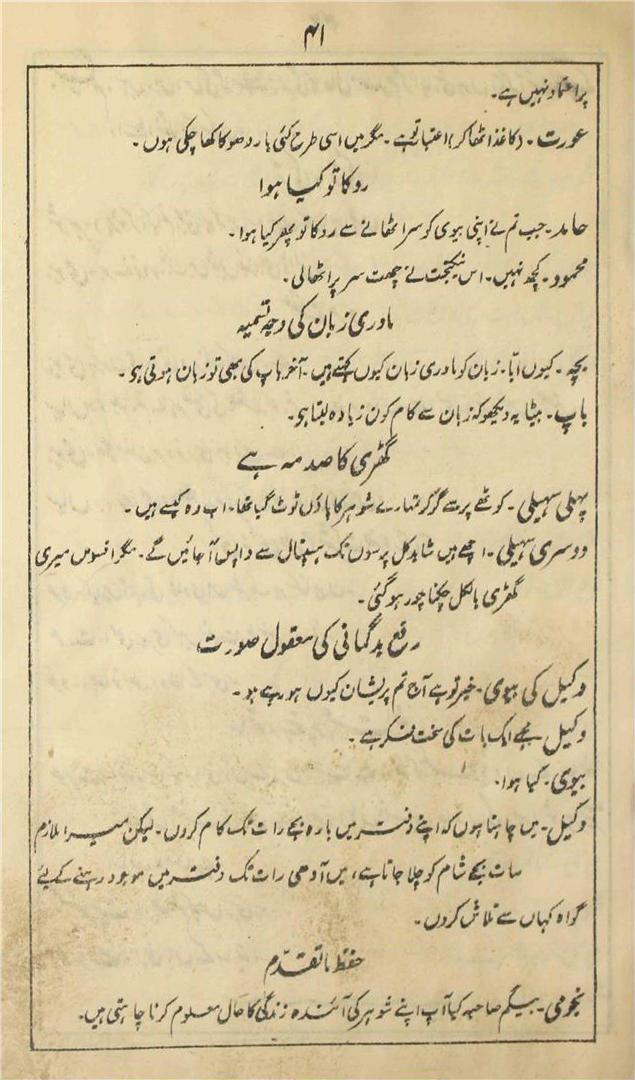 ۴۱
پر اعتماد نہیں ہے۔
عورت۔ (کاغذ اٹھا کر) اعتبار تو ہے۔ مگر میں اسی طرح کئی بار دھوکا کھا چکی ہوں۔
روکا تو کیا ہوا
حامد۔ جب تم نے اپنی بیوی کو سر اٹھانے سے روکا تو پھر کیا ہوا۔
محمود۔ کچھ نہیں۔ اس نیکبخت نے چھت سر پر اٹھا لی۔
مادری زبان کی وجہ تسمیہ
بچہ۔ کیوں ابا۔ زبان کو مادری زبان کیوں کہتے ہیں۔ آخر باپ کی بھی تو زبان ہوتی ہو۔
باپ۔ بیٹا یہ دیکھو کہ زبان سے کام کون زیادہ لیتا ہو۔
گھڑی کا صدمہ ہے
پہلی سہیلی۔ کوٹھے پر سے گر کر تمہارے شوہر کا پاؤں ٹوٹ گیا تھا۔ اب وہ کیسے ہیں۔
دوسری سہیلی۔ اچھے ہیں شاید کل پرسوں تک ہسپتال سے واپس آجائیں گے۔ مگر افسوس میری
گھڑی بالکل چکنا چور ہوگئی۔
رفع بدگمانی کی معقول صورت
وکیل کی بیوی۔ خیر تو ہے آج تم پریشان کیوں ہو رہے ہو۔
وکیل مجھے ایک بات کی سخت فکر ہے۔
بیوی۔ کیا ہوا۔
وکیل۔ میں چاہتا ہوں کہ اپنے دفتر میں بارہ بجے رات تک کام کروں۔ لیکن میرا ملازم
سات بجے شام کو چلا جاتا ہے، میں آدھی رات تک دفتر میں موجود رہنے کے لیے
گواہ کہاں سے تلاش کروں۔
حفظ ما تقدم
نجومی۔ بیگم صاحبہ کیا آپ اپنے شوہر کی آئندہ زندگی کا حال معلوم کرنا چاہتی ہیں۔